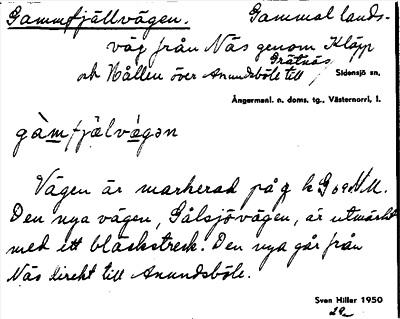 Gammfjällvägen. Gammal lands-
väg från Näs genom Kläpp
och Hållen över Anundsböle till Grätnäs
Sidensjö sn,
Ångermanl. n. doms. tg., Västernorrl. l.
gàmfjälvägən
Vägen är markerad på g k G o NV M.
Den nya vägen, Gålsjövägen, är utmärkt
med ett bläckstreck. Den nya går från
Näs direkt till Anundsböle.
Sven Hiller 1950